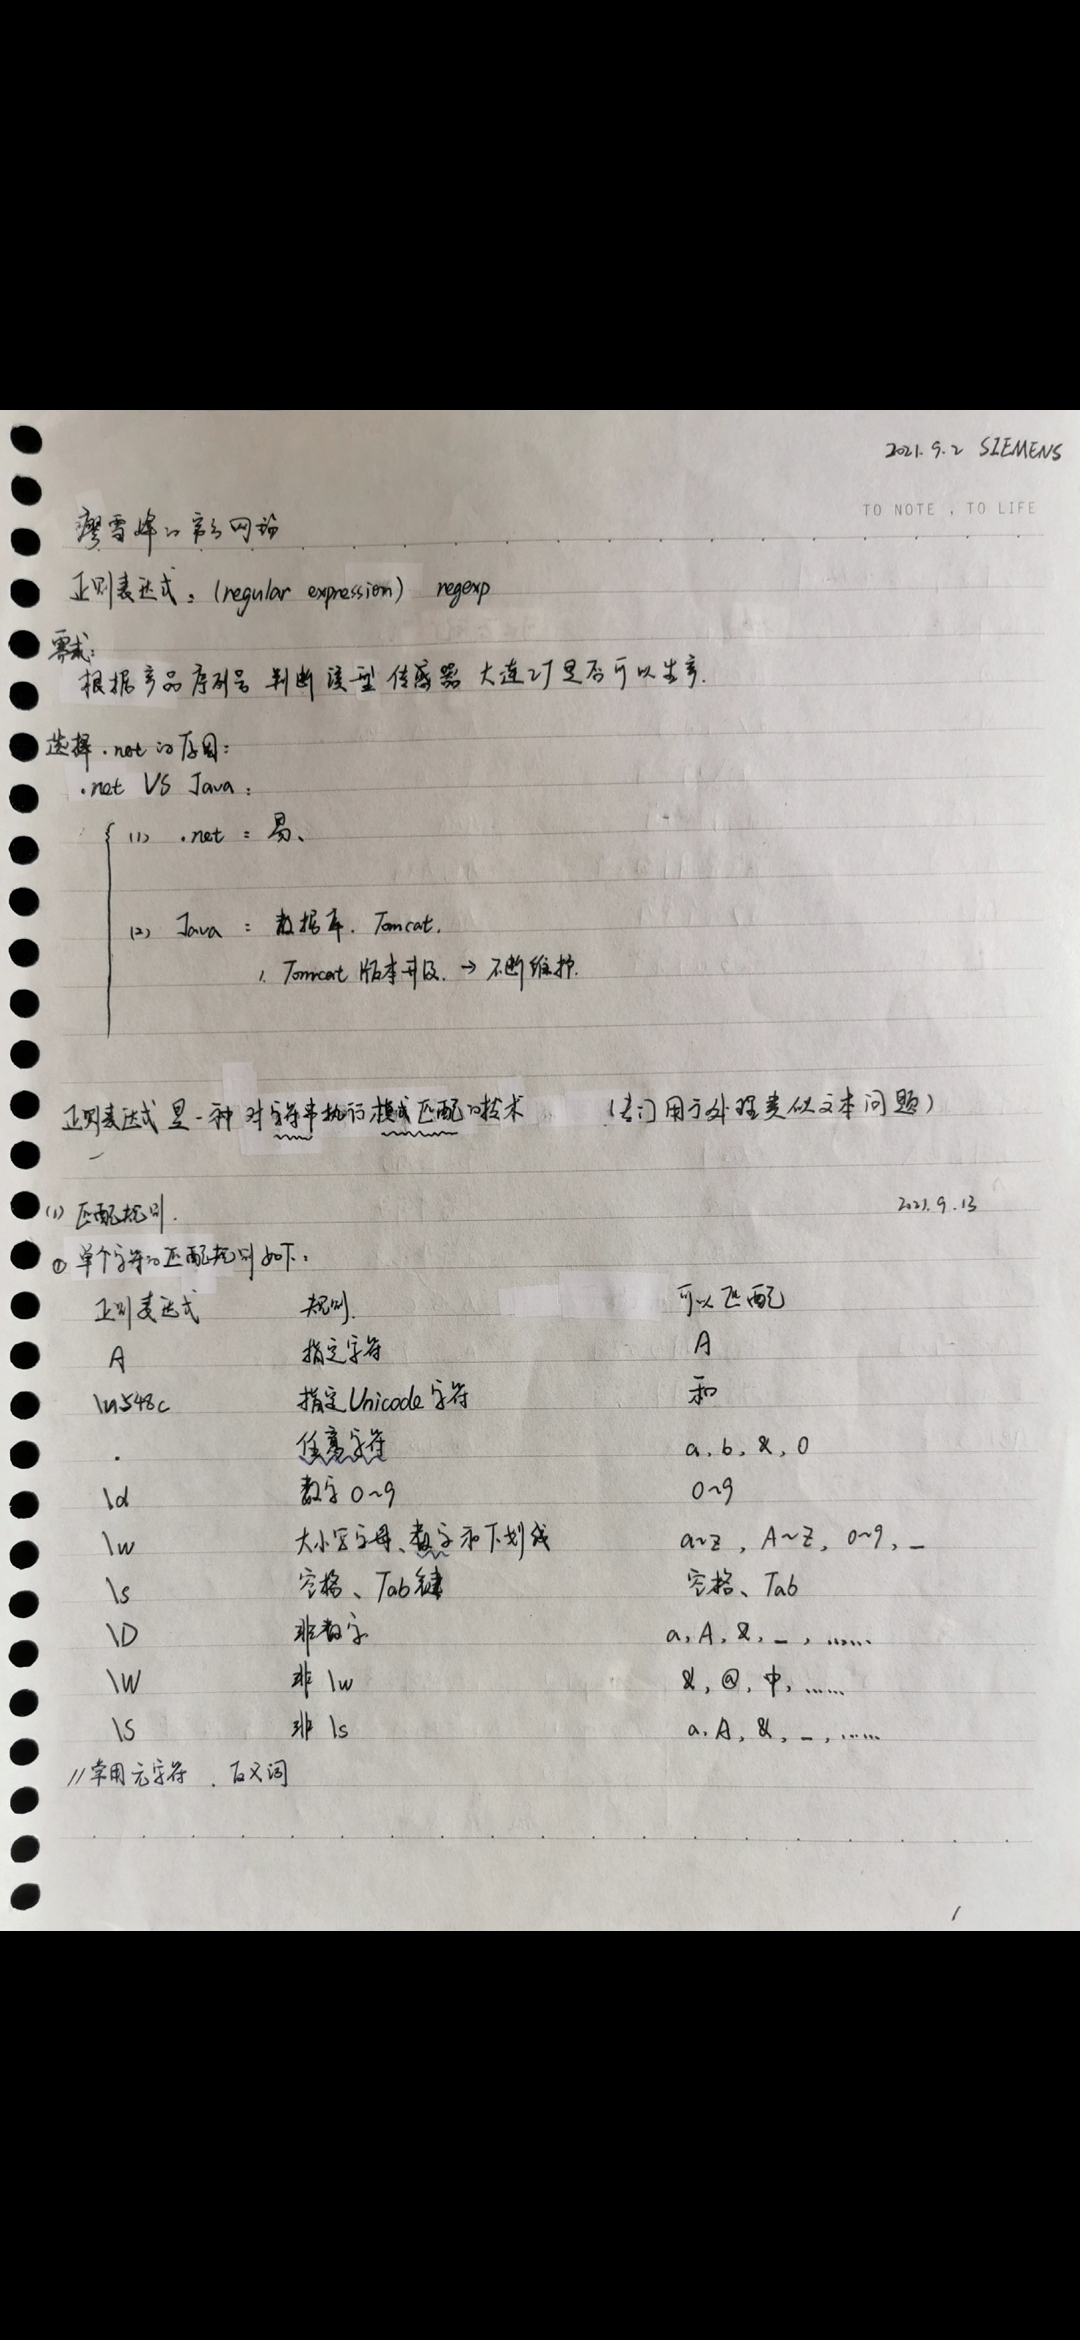 2021.9.2 SIEMENS
TO NOTE , TO LIFE
廖雪峰的官方网站
正则表达式：(regular expression) regexp
需求：
根据产品序列号 判断该型 传感器 大连厂是否可以生产.
选择 .net 的原因：
.net VS Java：
(1) .net：易、
(2) Java：数据库. Tomcat.
1. Tomcat 版本升级. → 不断维护.
正则表达式 是一种 对字符串执行模式匹配的技术 (专门用于处理类似文本问题)
(1) 匹配规则. 2021.9.13
① 单个字符的匹配规则如下：
正则表达式 规则. 可以匹配
A 指定字符 A
\u548c 指定Unicode字符 和
. 任意字符 a, b, &, 0
\d 数字 0~9 0~9
\w 大小写字母、数字和下划线 a~z, A~Z, 0~9, _
\s 空格、Tab键 空格、Tab
\D 非数字 a, A, &, _, ......
\W 非 \w &, @, 中, ......
\S 非 \s a, A, &, _, ......
//常用元字符 . 反义词
1